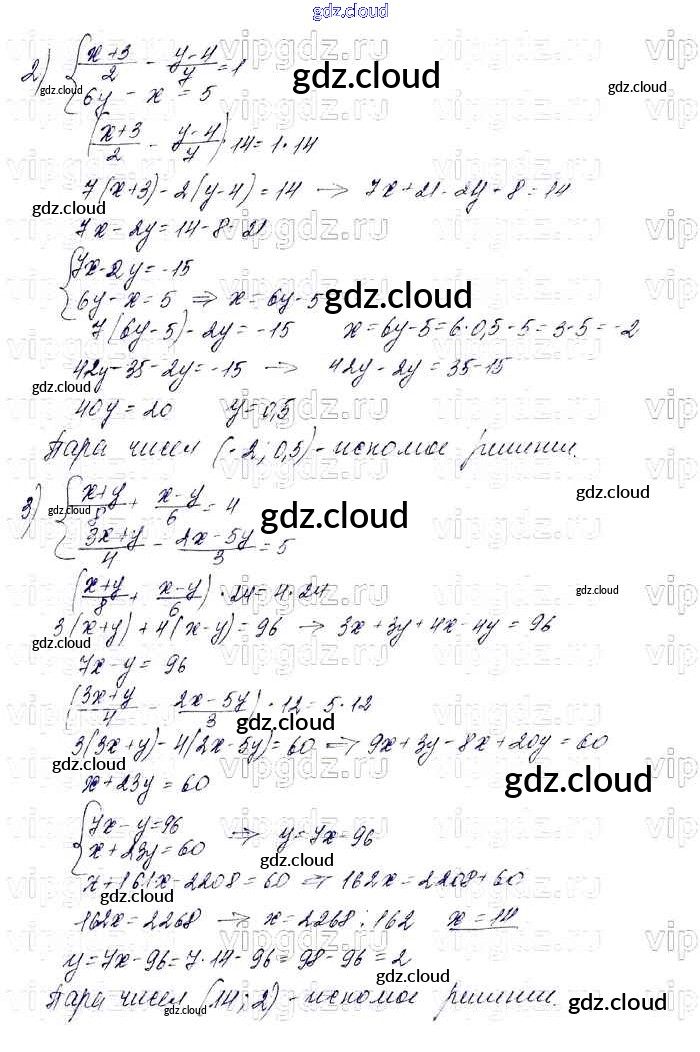 gdz.cloud
2) { (x+3)/2 - (y-4)/7 = 1
gdz.cloud
{ 6y - x = 5
gdz.cloud
((x+3)/2 - (y-4)/7) · 14 = 1 · 14
gdz.cloud
7(x+3) - 2(y-4) = 14 → 7x + 21 - 2y + 8 = 14
gdz.cloud
7x - 2y = 14 - 8 - 21
{ 7x - 2y = -15
{ 6y - x = 5 ⇒ x = 6y - 5
gdz.cloud
7(6y - 5) - 2y = -15 x = 6y - 5 = 6 · 0,5 - 5 = 3 - 5 = -2
42y - 35 - 2y = -15 → 42y - 2y = 35 - 15
gdz.cloud gdz.cloud
40y = 20 y = 0,5
Пара чисел (-2; 0,5) - искомое решение.
3) { (x+y)/8 + (x-y)/6 = 4
gdz.cloud gdz.cloud
gdz.cloud
{ (3x+y)/4 - (2x-5y)/3 = 5
((x+y)/8 + (x-y)/6) · 24 = 4 · 24
gdz.cloud
3(x+y) + 4(x-y) = 96 → 3x + 3y + 4x - 4y = 96
gdz.cloud
7x - y = 96
((3x+y)/4 - (2x-5y)/3) · 12 = 5 · 12
gdz.cloud
3(3x+y) - 4(2x-5y) = 60 ⇒ 9x + 3y - 8x + 20y = 60
gdz.cloud
x + 23y = 60
gdz.cloud
{ 7x - y = 96 ⇒ y = 7x - 96
{ x + 23y = 60
gdz.cloud
x + 161x - 2208 = 60 ⇒ 162x = 2208 + 60
gdz.cloud
162x = 2268 → x = 2268 : 162 x = 14
y = 7x - 96 = 7 · 14 - 96 = 98 - 96 = 2
gdz.cloud
Пара чисел (14; 2) - искомое решение.
gdz.cloud gdz.cloud